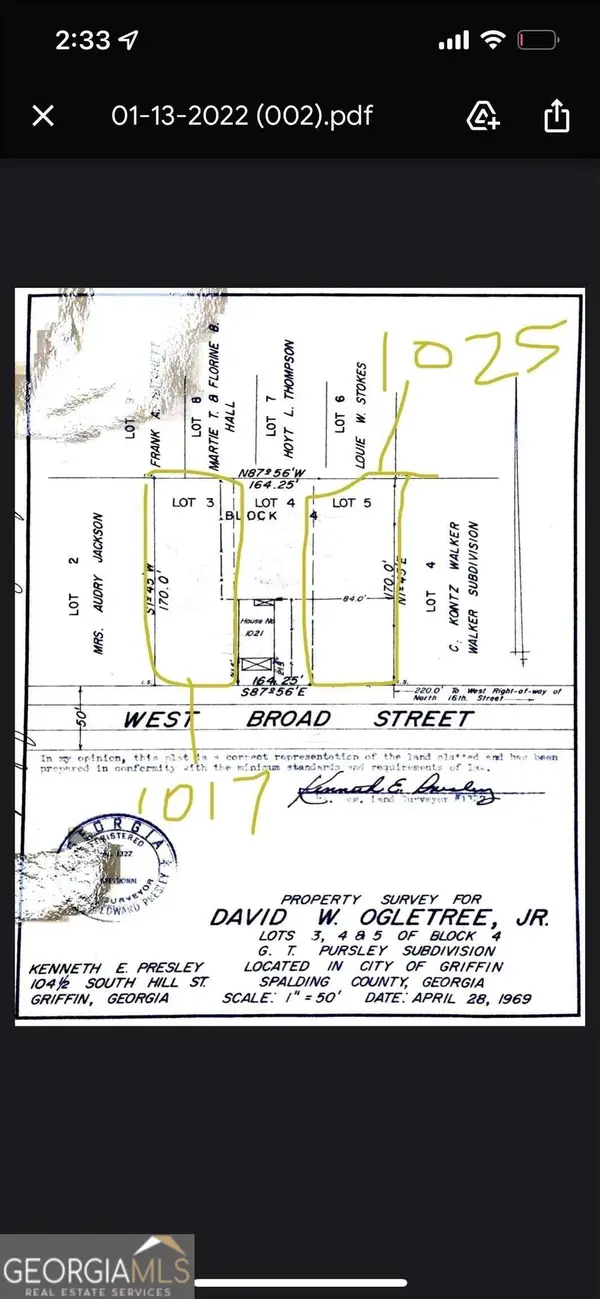 2:33
01-13-2022 (002).pdf
1025
LOT 8
MARTIE T. & FLORINE B. HALL
LOT 7
HOYT L. THOMPSON
LOT 6
LOUIE W. STOKES
FRANK A.
N87°56'W
164.25'
LOT 3
LOT 4
LOT 5
BLOCK 4
LOT 2
MRS. AUDRY JACKSON
S1°45'W
170.0'
84.0'
House No.
1021
170.0'
N1°45'E
LOT 4
C. KONTZ WALKER
WALKER SUBDIVISION
164.25'
S87°56'E
220.0' To West Right-of-way of
North 16th. Street
50'
WEST BROAD STREET
In my opinion, this plat is a correct representation of the land platted and has been
prepared in conformity with the minimum standards and requirements of law.
Kenneth E. Presley
1017
GEORGIA
REGISTERED
SURVEYOR
EDWARD PRESLEY
PROPERTY SURVEY FOR
DAVID W. OGLETREE, JR.
LOTS 3, 4 & 5 OF BLOCK 4
G. T. PURSLEY SUBDIVISION
KENNETH E. PRESLEY
LOCATED IN CITY OF GRIFFIN
104½ SOUTH HILL ST.
SPALDING COUNTY, GEORGIA
GRIFFIN, GEORGIA
SCALE: 1" = 50'
DATE: APRIL 28, 1969
GEORGIAMLS
REAL ESTATE SERVICES